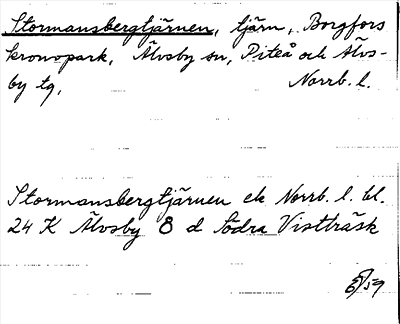 Stormansbergtjärnen, tjärn, Borgfors
kronopark, Älvsby sn, Piteå och Älvs-
by tg, Norrb. l.
Stormansbergtjärnen ek Norrb. l. bl.
24 K Älvsby 8 d Södra Vistträsk
/59